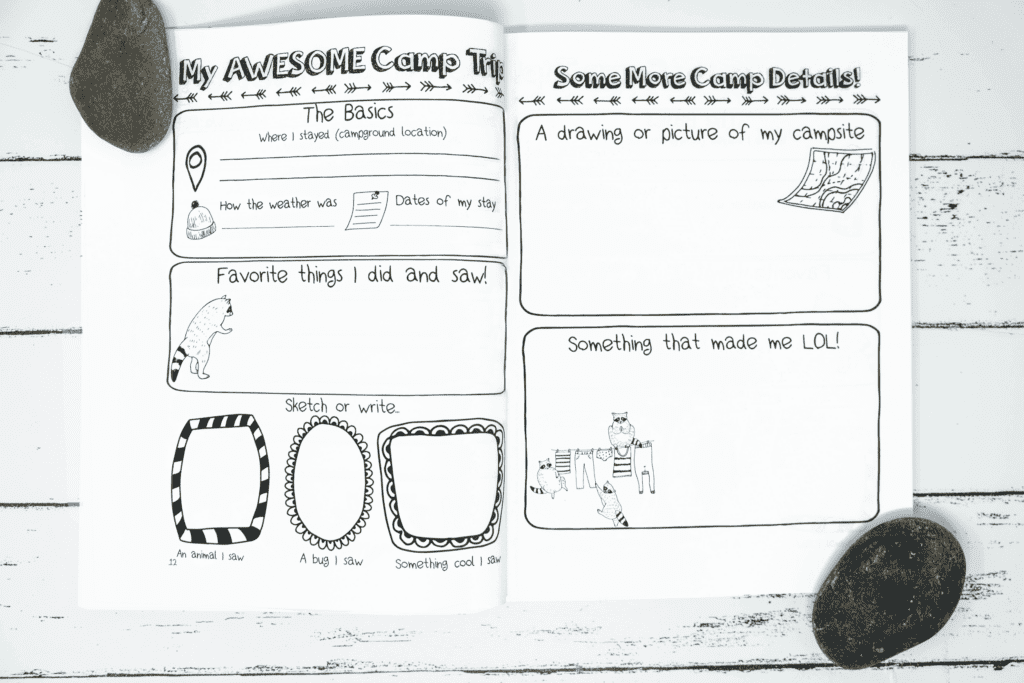 My AWESOME Camp Trip
The Basics
Where I stayed (campground location)
How the weather was
Dates of my stay
Favorite things I did and saw!
Sketch or write...
An animal I saw
A bug I saw
Something cool I saw
12
Some More Camp Details!
A drawing or picture of my campsite
Something that made me LOL!